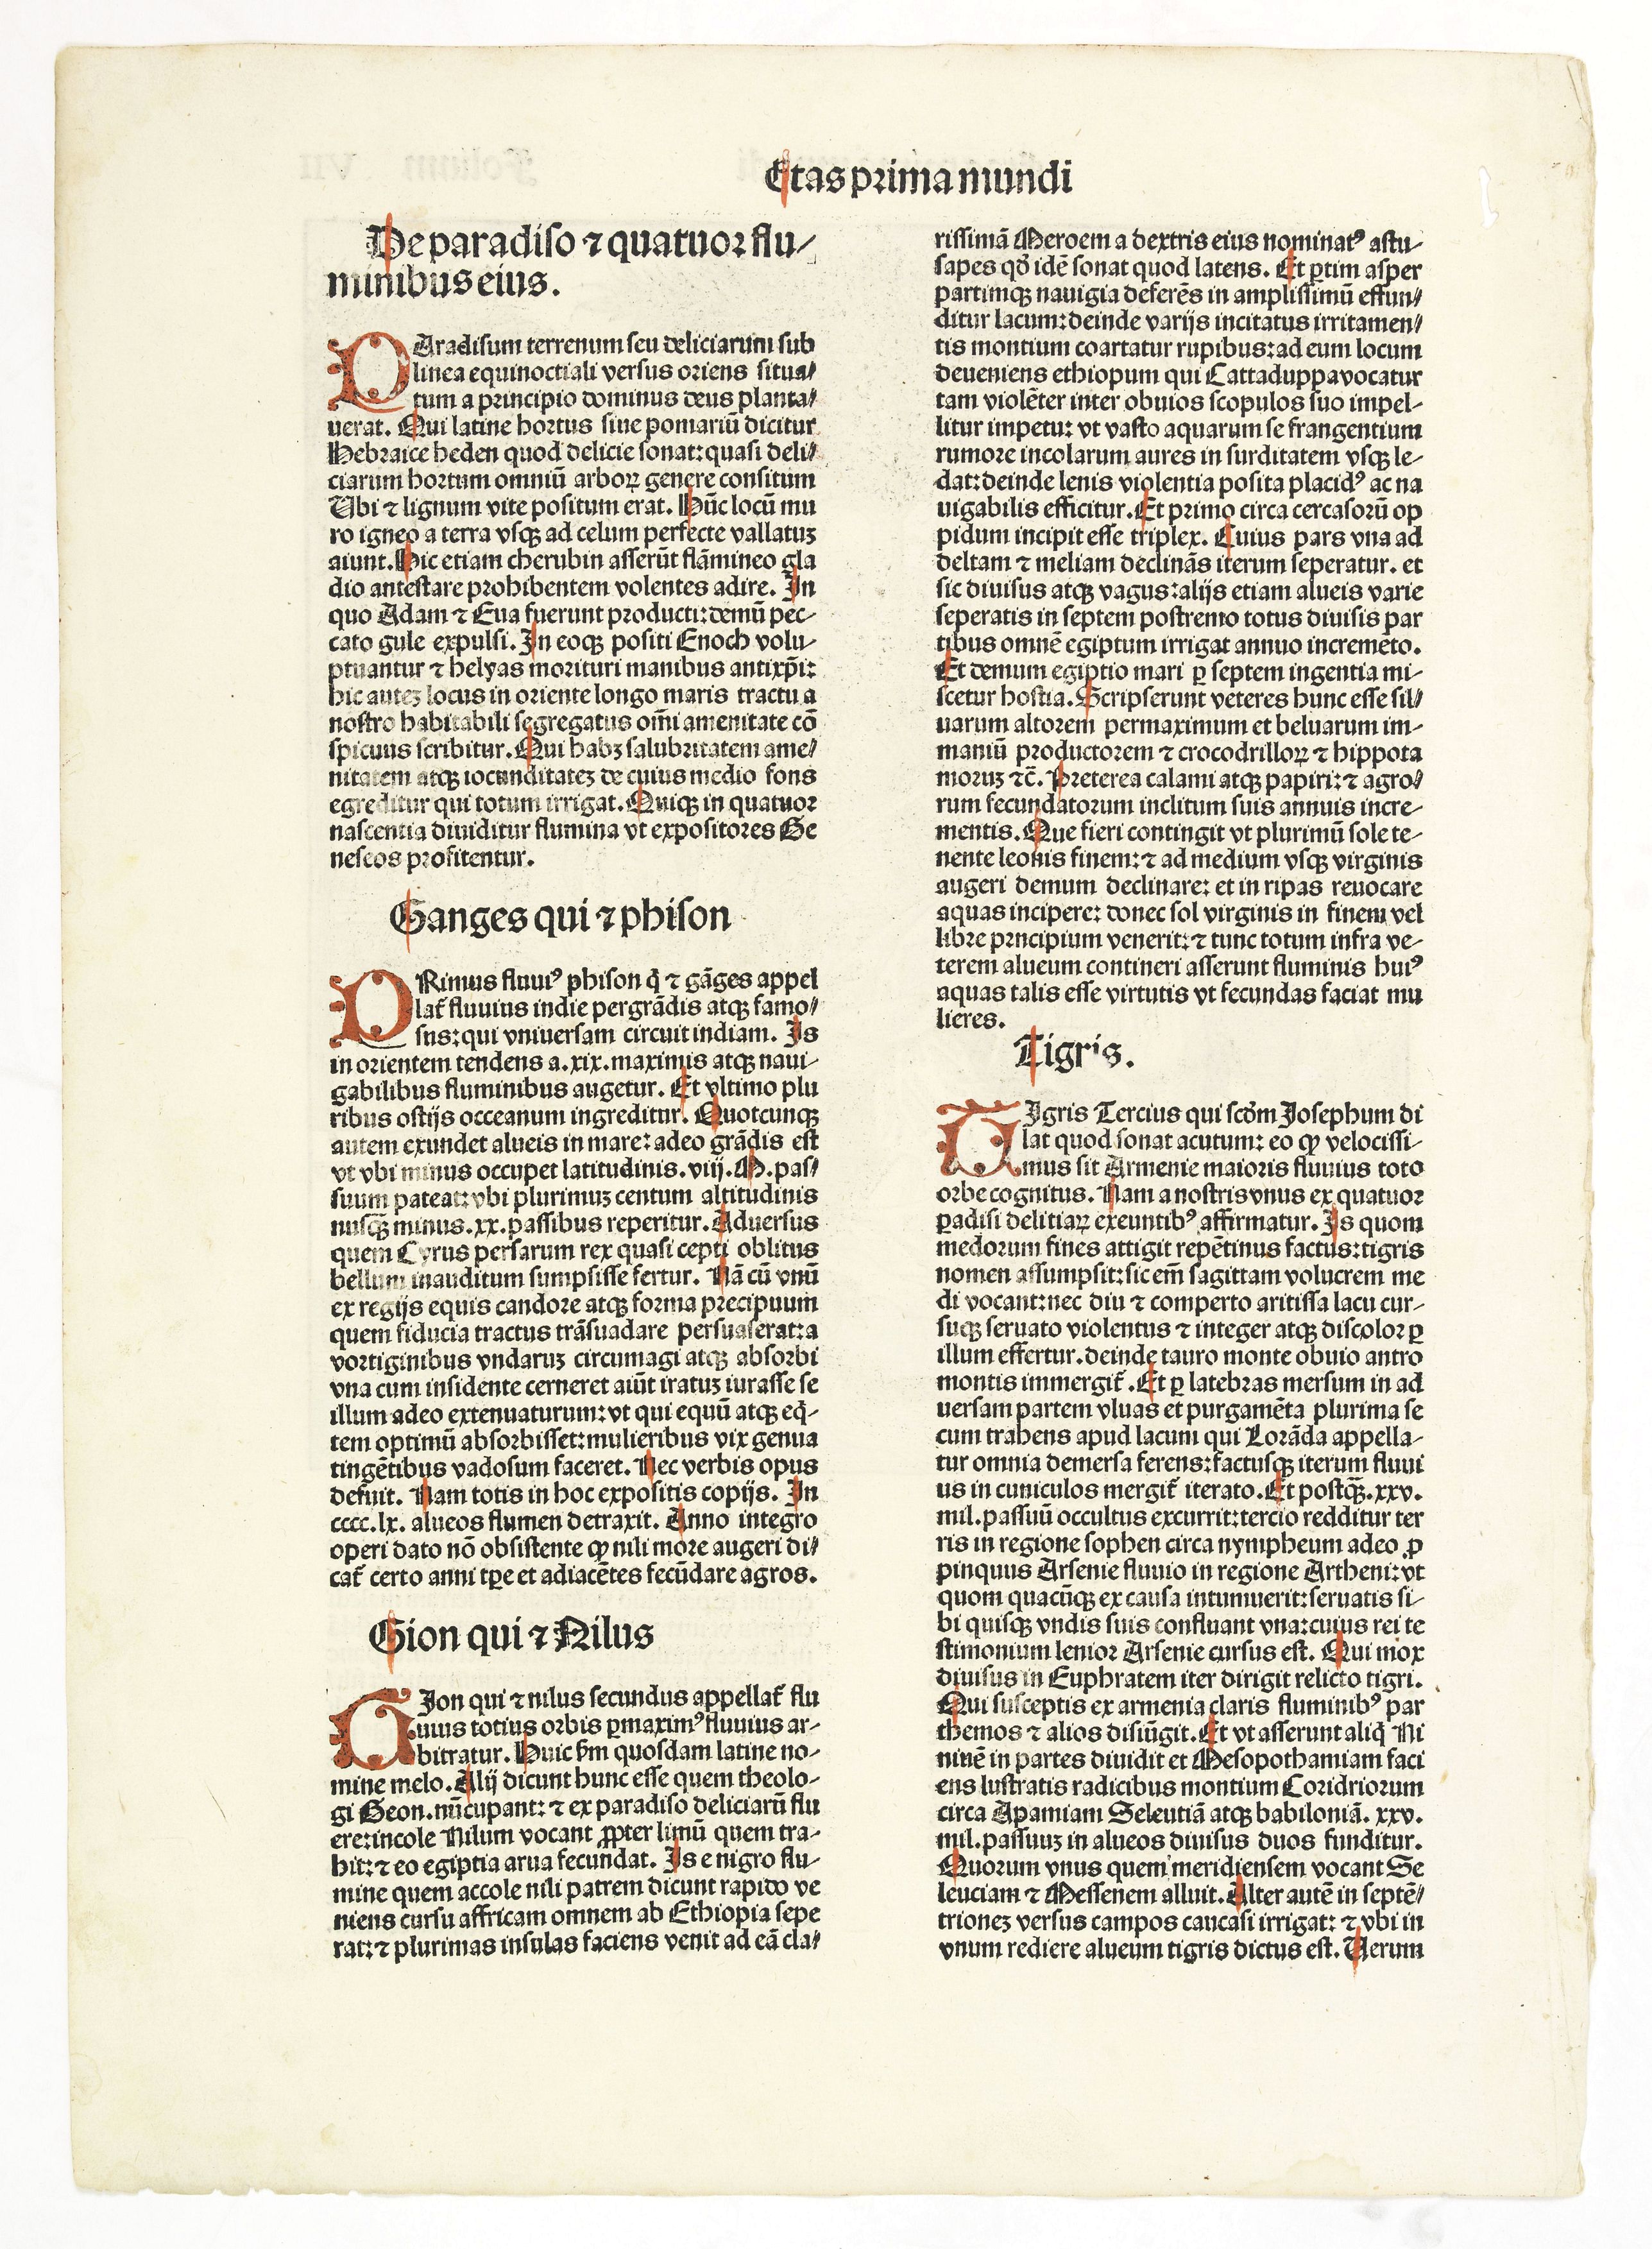 Etas prima mundi
De paradiso ⁊ quatuor flu/
minibus eius.
PAradisum terrenum seu deliciarum sub
linea equinoctiali versus oriens situa/
tum a principio dominus deus planta/
uerat. Qui latine hortus siue pomariū dicitur
Hebraice heden quod delicie sonat: quasi deli/
ciarum hortum omniū arboꝝ genere consitum
Ubi ⁊ lignum vite positum erat. Hūc locū mu
ro igneo a terra vsqꝫ ad celum perfecte vallatuꝫ
aiunt. Hic etiam cherubin asserūt flāmineo gla
dio antestare prohibentem volentes adire. In
quo Adam ⁊ Eua fuerunt producti: demū pec-
cato gule expulsi. In eoqꝫ positi Enoch volu-
ptuantur ⁊ helyas morituri manibus antixp̄i:
hic auteꝫ locus in oriente longo maris tractu a
nostro habitabili segregatus om̄i amenitate cō
spicuus scribitur. Qui habꝫ salubritatem ame/
nitatem atqꝫ iocunditateꝫ de cuius medio fons
egreditur qui totum irrigat. Quiqꝫ in quatuor
nascentia diuiditur flumina vt expositores Ge
neseos profitentur.
Ganges qui ⁊ phison
PRimus fluuiꝰ phison q̄ ⁊ gāges appel
lat̄ fluuius indie pergrādis atqꝫ famo/
sus: qui vniuersam circuit indiam. Is
in orientem tendens a .xix. maximis atqꝫ naui-
gabilibus fluminibus augetur. Et vltimo plu
ribus ostijs occeanum ingreditur. Quotcunqꝫ
autem exundet alueis in mare: adeo grādis est
vt vbi minus occupet latitudinis .viij. M. pas/
suum pateat: vbi plurimuꝫ centum altitudinis
nusq̄ꝫ minus .xx. passibus reperitur. Aduersus
quem Cyrus persarum rex quasi cepti oblitus
bellum inauditum sumpsisse fertur. Nā cū vnū
ex regijs equis candore atqꝫ forma precipuum
quem fiducia tractus trāsuadare persuaserat: a
vortiginibus vndaruꝫ circumagi atqꝫ absorbi
vna cum insidente cerneret aiūt iratuꝫ iurasse se
illum adeo extenuaturum: vt qui equū atqꝫ eq̄-
tem optimū absorbisset: mulieribus vix genua
tingētibus vadosum faceret. Nec verbis opus
defuit. Nam totis in hoc expositis copijs. In
cccc.lx. alueos flumen detraxit. Anno integro
operi dato nō obsistente ꝙ nili more augeri di/
cat̄ certo anni tꝑe et adiacētes fecūdare agros.
Gion qui ⁊ Nilus
GIon qui ⁊ nilus secundus appellat̄ flu
uius totius orbis ꝑmaximꝰ fluuius ar-
bitratur. Huic ẜm quosdam latine no-
mine melo. Alij dicunt hunc esse quem theolo-
gi Geon. nūcupant: ⁊ ex paradiso deliciarū flu
ere: incole Nilum vocant ꝓpter limū quem tra-
hit: ⁊ eo egiptia arua fecundat. Is e nigro flu-
mine quem accole nili patrem dicunt rapido ve
niens cursu affricam omnem ab Ethiopia sepe
rat: ⁊ plurimas insulas faciens venit ad eā cla/
rissimā Meroem a dextris eius nominatꝰ astu-
sapes qd̄ idē sonat quod latens. Et ꝑtim asper
partimqꝫ nauigia deferēs in amplissimū effun/
ditur lacum: deinde varijs incitatus irritamen/
tis montium coartatur rupibus: ad eum locum
deueniens ethiopum qui Cattaduppa vocatur
tam violēter inter obuios scopulos suo impel-
litur impetu: vt vasto aquarum se frangentium
rumore incolarum aures in surditatem vsqꝫ le-
dat: deinde lenis violentia posita placidꝰ ac na
uigabilis efficitur. Et primo circa cercasorū op
pidum incipit esse triplex. Cuius pars vna ad
deltam ⁊ meliam declinās iterum seperatur. et
sic diuisus atqꝫ vagus: alijs etiam alueis varie
seperatis in septem postremo totus diuisis par
tibus omnē egiptum irrigat annuo incremēto.
Et demum egiptio mari ꝑ septem ingentia mi-
scetur hostia. Scripserunt veteres hunc esse sil/
uarum altorem permaximum et beluarum im-
maniū productorem ⁊ crocodrilloꝝ ⁊ hippota
moruꝫ ⁊c̄. Preterea calami atqꝫ papiri: ⁊ agro/
rum fecundatorum inclitum suis annuis incre-
mentis. Que fieri contingit vt plurimū sole te-
nente leonis finem: ⁊ ad medium vsqꝫ virginis
augeri demum declinare: et in ripas reuocare
aquas incipere: donec sol virginis in finem vel
libre prncipium venerit: ⁊ tunc totum infra ve-
terem alueum contineri asserunt fluminis huiꝰ
aquas talis esse virtutis vt fecundas faciat mu
lieres.
Tigris.
TIgris Tercius qui scd̄m Josephum di
lat quod sonat acutum: eo ꝙ velocissi-
mus sit Armenie maioris fluuius toto
orbe cognitus. Nam a nostris vnus ex quatuor
ꝑadisi delitiaꝝ exeuntibꝰ affirmatur. Is quom
medorum fines attigit repētinus factus: tigris
nomen assumpsit: sic em̄ sagittam volucrem me
di vocant: nec diu ⁊ comperto aritissa lacu cur-
suqꝫ seruato violentus ⁊ integer atqꝫ discolor ꝑ
illum effertur. deinde tauro monte obuio antro
montis immergit̄. Et ꝑ latebras mersum in ad
uersam partem vluas et purgamēta plurima se
cum trahens apud lacum qui Lorāda appella-
tur omnia demersa ferens: factusqꝫ iterum fluui
us in cuniculos mergit̄ iterato. Et postq̄ꝫ .xxv.
mil. passuū occultus excurrit: tercio redditur ter
ris in regione sophen circa nympheum adeo ꝓ
pinquus Arsenie fluuio in regione Artheni: vt
quom quacūqꝫ ex causa intumuerit: seruatis si-
bi quisqꝫ vndis suis confluant vna: cuius rei te
stimonium lenior Arsenie cursus est. Qui mox
diuisus in Euphratem iter dirigit relicto tigri.
Qui susceptis ex armenia claris fluminibꝰ par
themos ⁊ alios disiūgit. Et vt asserunt aliq̄ Ni
niuē in partes diuidit et Mesopothamiam faci
ens lustratis radicibus montium Coridriorum
circa Apamiam Seleutiā atqꝫ babiloniā. xxv.
mil. passuuꝫ in alueos diuisus duos funditur.
Quorum vnus quem meridiensem vocant Se
leuciam ⁊ Messenem alluit. Alter autē in septē/
trioneꝫ versus campos caucasi irrigat: ⁊ vbi in
vnum rediere alueum tigris dictus est. Uerum